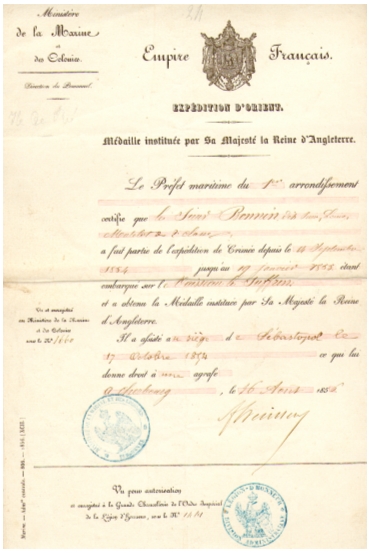 Ministère
de la Marine
et
des Colonies.
Direction du Personnel.
Empire Français.
EXPÉDITION D'ORIENT.
Médaille instituée par Sa Majesté la Reine d'Angleterre.
Le Préfet maritime du 1er arrondissement
certifie que le Sieur
Matelot de
a fait partie de l'expédition de Crimée depuis le 14 Septembre
1854 jusqu'au 19 janvier 1855 étant
embarqué sur le Suffren
et a obtenu la Médaille instituée par Sa Majesté la Reine
d'Angleterre.
Vu et enregistré
au Ministère de la Marine
et des Colonies
sous le No
Il a assisté au siège de Sébastopol le
17 Octobre 1854 ce qui lui
donne droit à une agrafe
à Cherbourg, le 26 Août 1856
Vu pour autorisation
et enregistré à la Grande Chancellerie de l'Ordre Impérial
de la Légion d'Honneur, sous le No